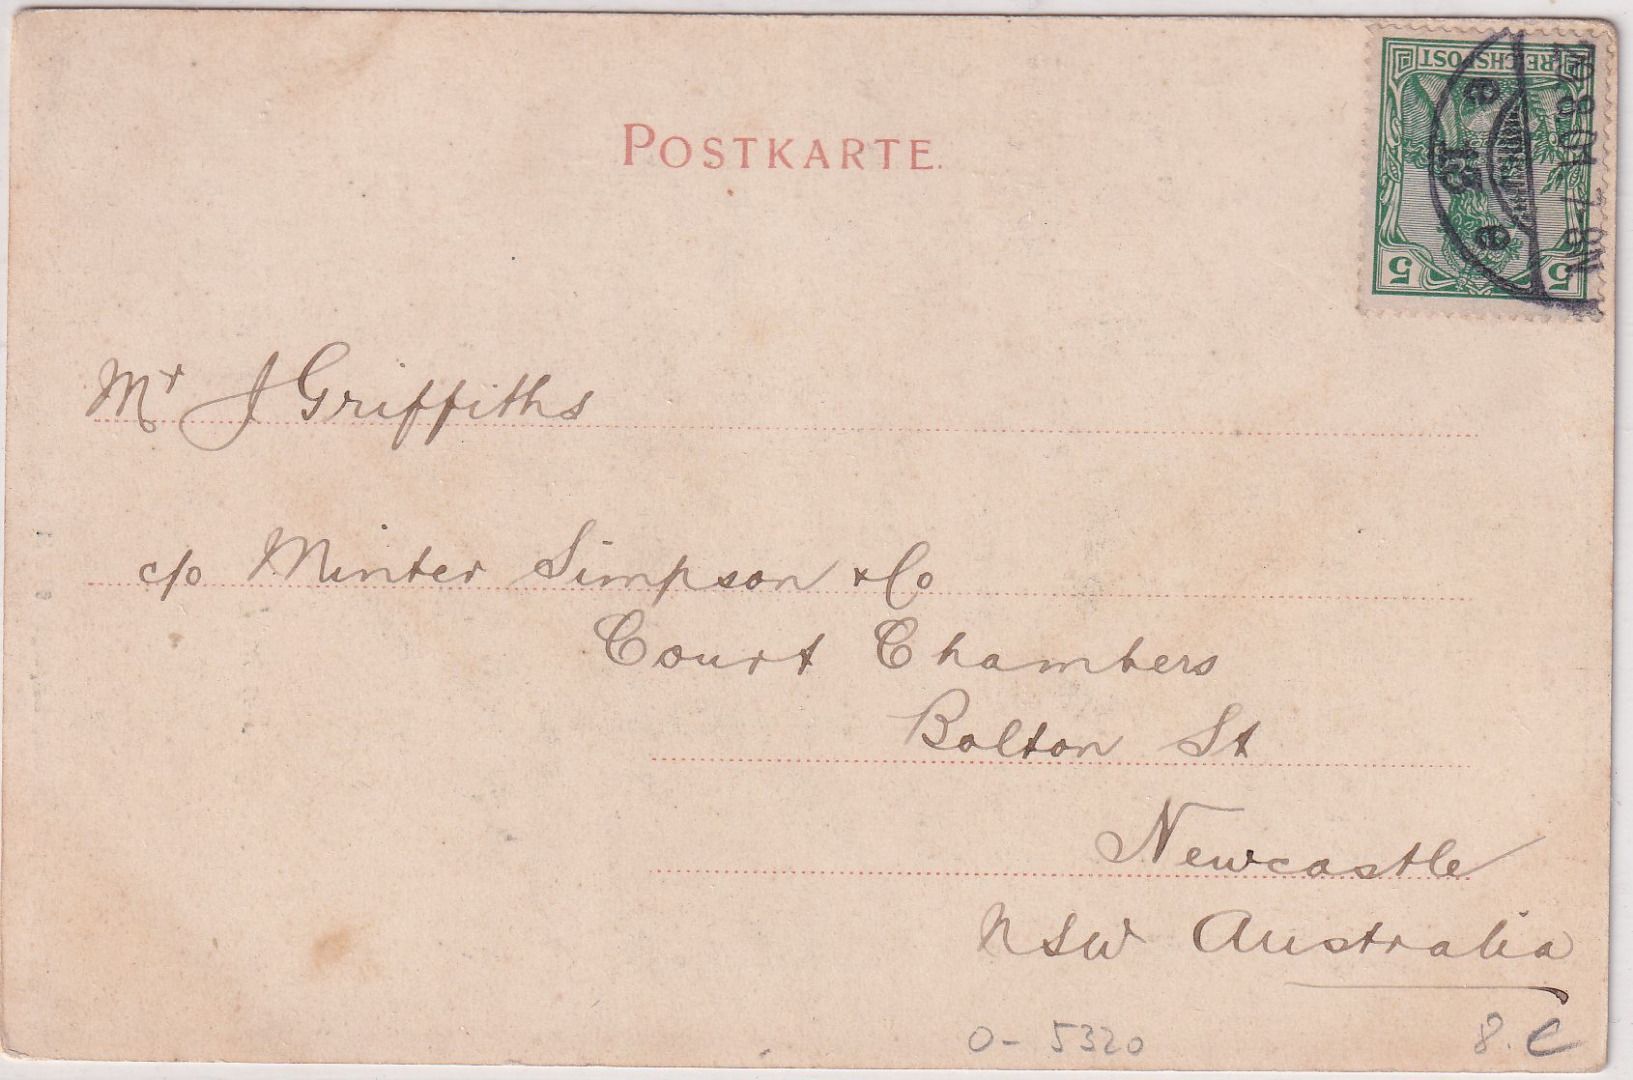 POSTKARTE.
REICHSPOST
5 5
8.01. 7-8N
e 13 e
Mr J Griffiths
c/o Minter Simpson & Co
Court Chambers
Bolton St
Newcastle
NSW Australia
0- 5320
8.